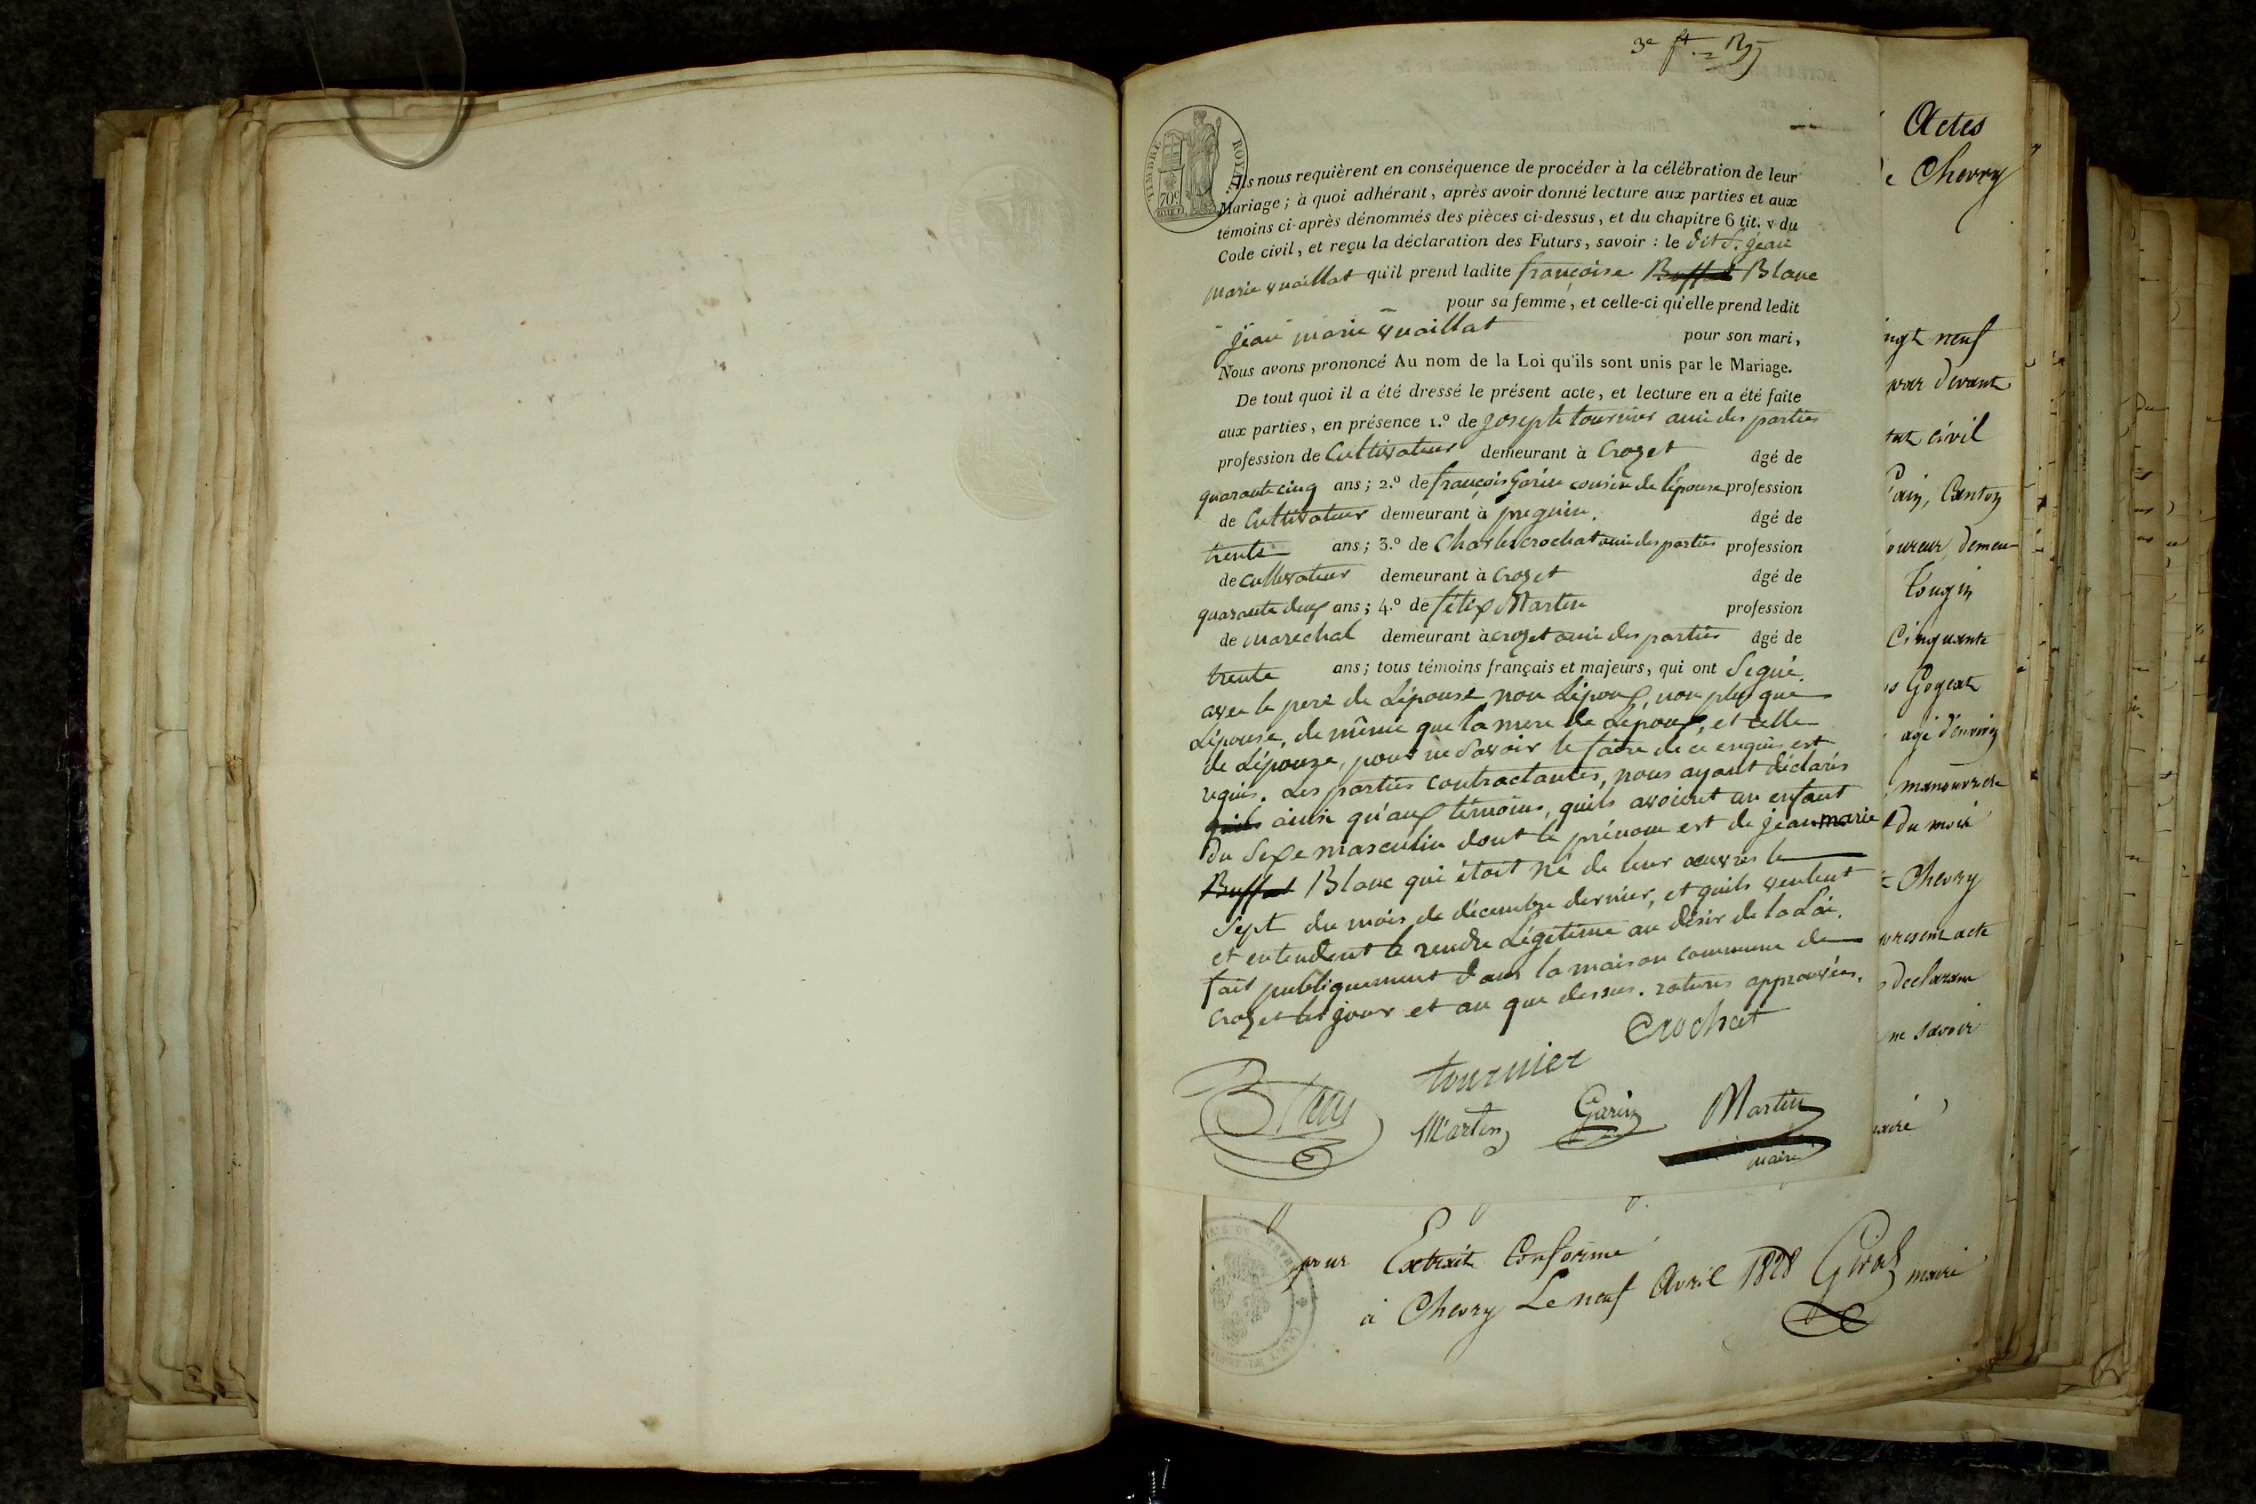 3e ft.
TIMBRE ROYAL
70c
Ils nous requièrent en conséquence de procéder à la célébration de leur
Mariage ; à quoi adhérant, après avoir donné lecture aux parties et aux
témoins ci-après dénommés des pièces ci-dessus, et du chapitre 6 tit. v du
Code civil, et reçu la déclaration des Futurs, savoir : le dit S. jean
marie vuaillat qu'il prend ladite françoise Buffat Blanc
pour sa femme, et celle-ci qu'elle prend ledit
jean marie vuaillat pour son mari,
Nous avons prononcé Au nom de la Loi qu'ils sont unis par le Mariage.
De tout quoi il a été dressé le présent acte, et lecture en a été faite
aux parties, en présence 1.º de joseph tournier ami des parties
profession de Cultivateur demeurant à Crozet âgé de
quarante cinq ans ; 2.º de françois Garin cousin de l'épouse profession
de Cultivateur demeurant à pregnin. âgé de
trente ans ; 3.º de Charles crochat ami des parties profession
de cultivateur demeurant à crozet âgé de
quarante deux ans ; 4.º de félix Martin profession
de marechal demeurant à crozet ami des parties âgé de
trente ans ; tous témoins français et majeurs, qui ont signé.
avec le pere de Lépouse non Lépoux, non plus que
Lépouse, de même que la mere de Lépoux, et celle
de Lépouze, pour ne savoir le faire de ce enquis est
requis. Les parties contractantes, nous ayant déclarés
quils ainsi qu'aux témoins, quils avoient un enfant
du sexe masculin dont le prénom est de jean marie
Buffat Blanc qui étoit né de leur œuvres le
sept du mois de décembre dernier, et quils veulent
et entendent le rendre Légitime au désir de la Loi.
fait publiquement dans la maison commune de
crozet les jour et an que dessus. ratures approuvées.
Crochat
tournier
Blanc
Martin Garin Martin
maire
pour Extrait Conforme
à Chevry Le neuf Avril 1828 Girod maire
Actes
Chevry
ingt neuf
par devant
tat civil
l'ain, Canton
oureur, demeu
Tougin
Cinquante
Gogeat
agé d'environ
manouvrier
du mois
Chevry
present acte
declarant
ne savoir